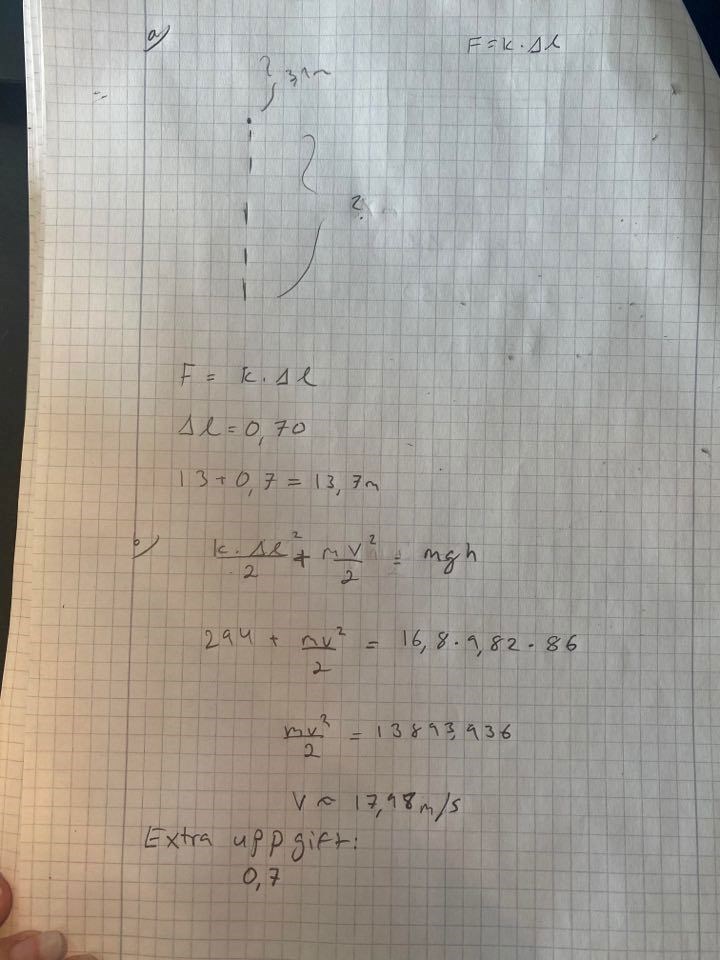 a) F = k · Δl
? 3,1 m
?
F = k · Δl
Δl = 0,70
13 + 0,7 = 13,7 m
b) k · Δl²/2 + mv²/2 = mgh
294 + mv²/2 = 16,8 · 9,82 · 86
mv²/2 = 13893,936
v ≈ 17,98 m/s
Extra uppgift:
0,7